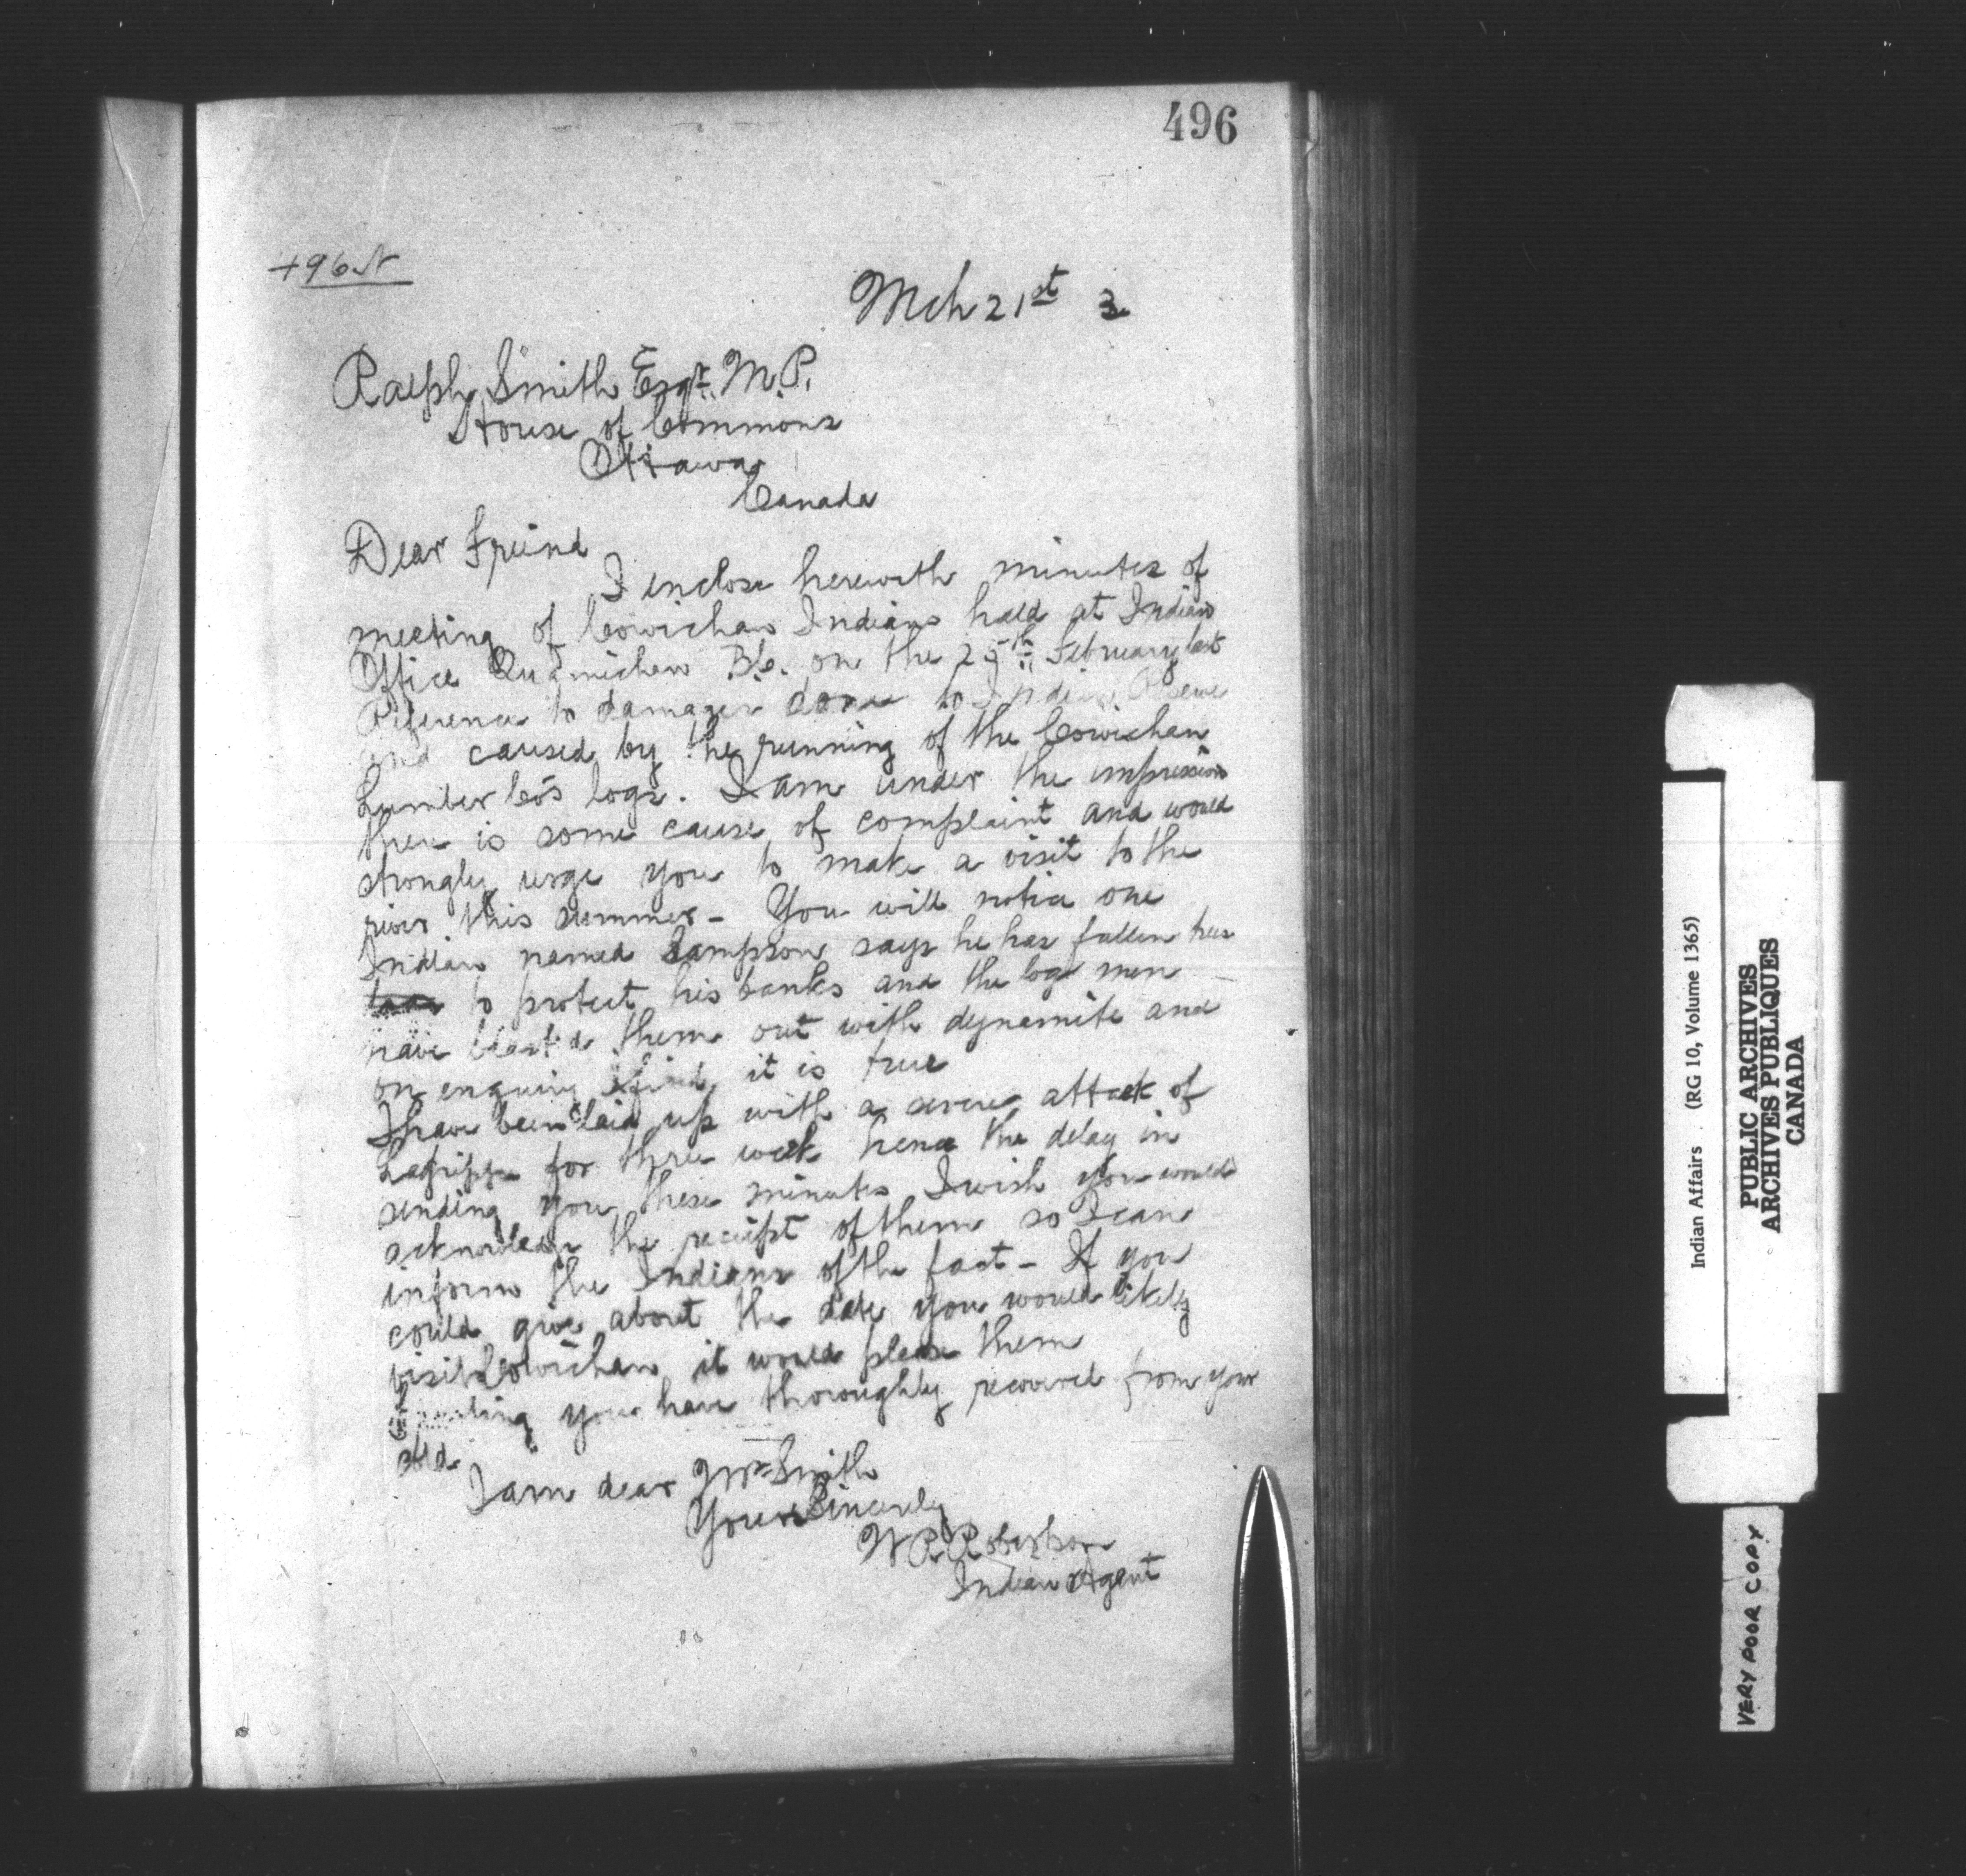 496
Mch 21st 3
Ralph Smith Esqr. M.P.
House of Commons
Ottawa
Canada
Dear Freind
I inclose herewith minutes of
meeting of Cowichan Indians held at Indian
Office Quamichan B.C. on the 25th February last
Reference to damages done to Indian Reserve
and caused by the running of the Cowichan
Lumber Co's logs. I am under the impression
there is some cause of complaint and would
strongly urge you to make a visit to the
river this summer - You will notice one
Indian named Sampson says he has fallen trees
to protect his banks and the log men
have blasted them out with dynamite and
on enquiry I find it is true
I have been laid up with a severe attack of
Lagrippe for three week hence the delay in
sending you these minutes I wish you would
acknowledge the receipt of them so I can
inform the Indians of the fact - If you
could give about the date you would likely
visit Cowichan it would please them
you have thoroughly recovered from your
I am dear Mr Smith
Yours Sincerely
W R Robertson
Indian Agent
Indian Affairs . (RG 10, Volume 1365)
PUBLIC ARCHIVES
ARCHIVES PUBLIQUES
CANADA
VERY POOR COPY